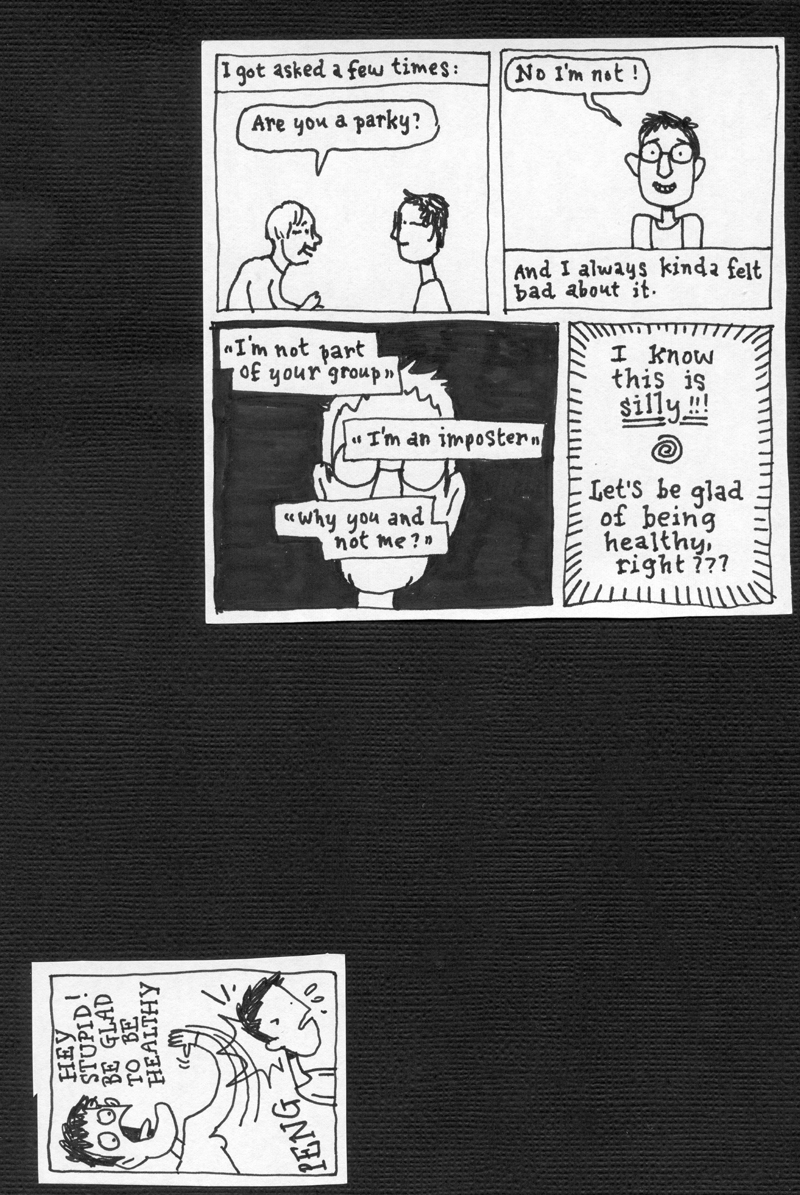 I got asked a few times:
Are you a parky?
No I'm not!
And I always kinda felt
bad about it.
"I'm not part
of your group"
"I'm an imposter"
"Why you and
not me?"
I know
this is
silly!!!
Let's be glad
of being
healthy,
right???
HEY
STUPID!
BE GLAD
TO BE
HEALTHY
PENG